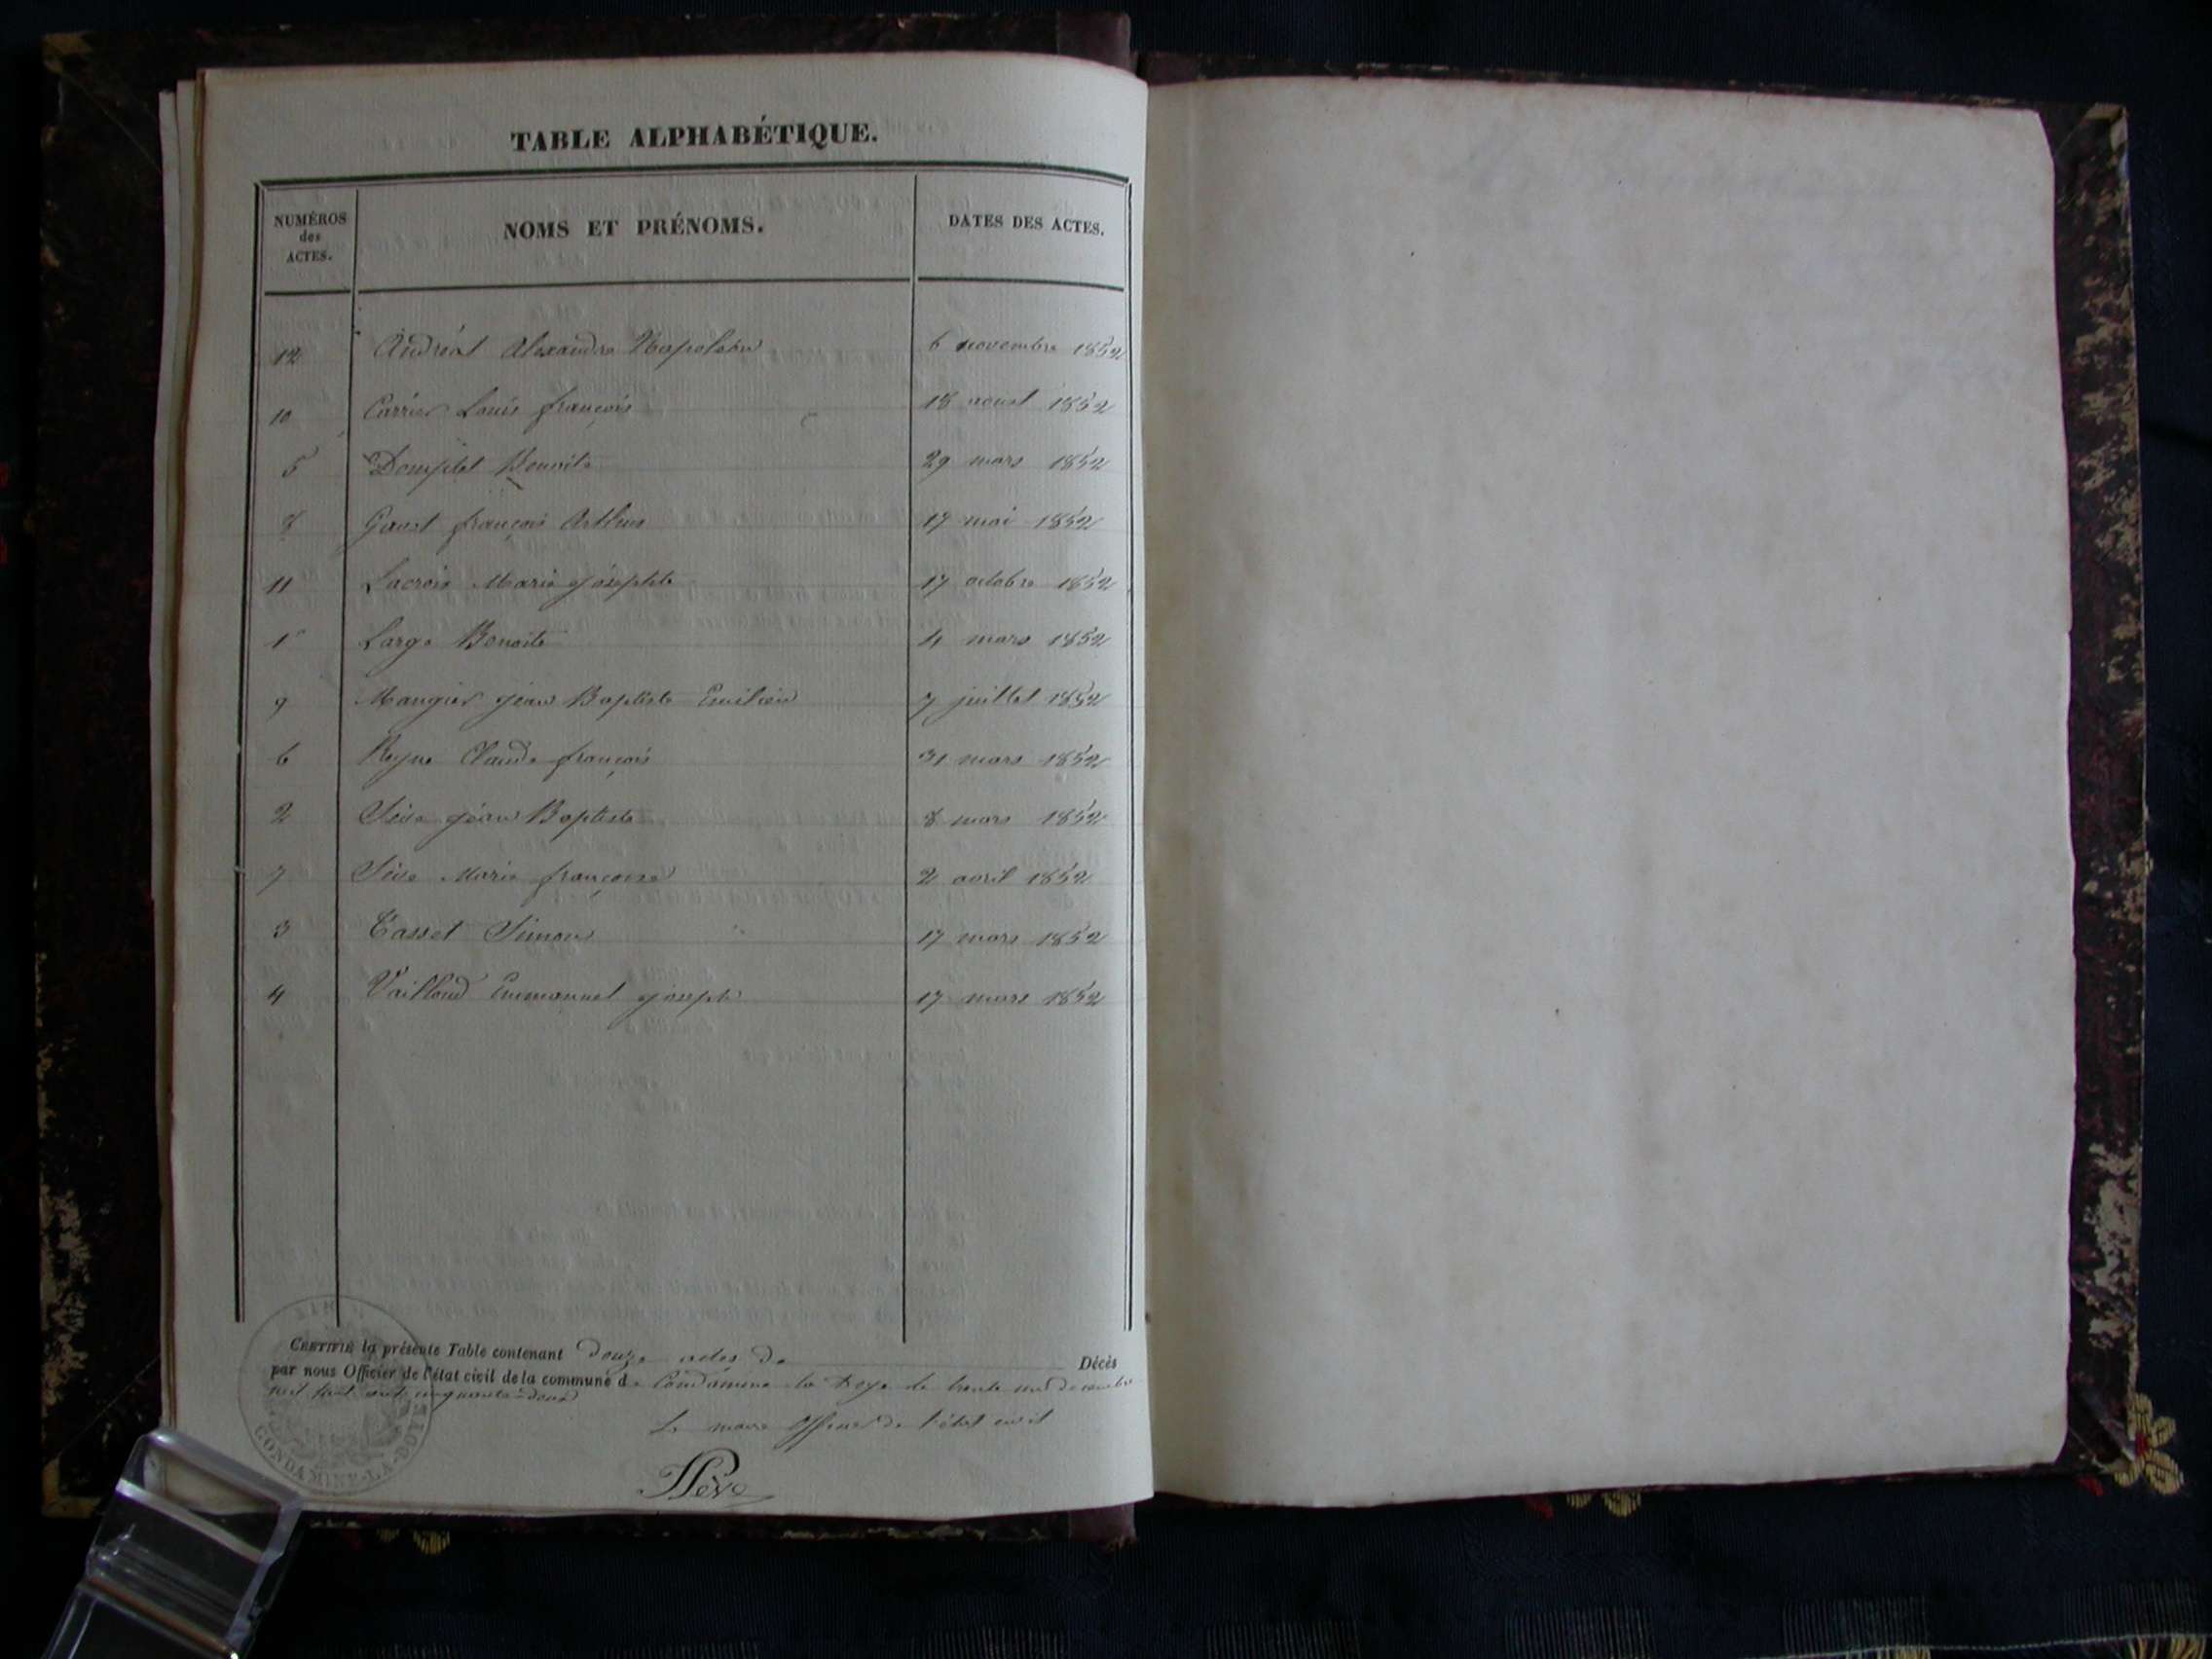 TABLE ALPHABÉTIQUE.
NUMÉROS des ACTES.
NOMS ET PRÉNOMS.
DATES DES ACTES.
12 Andréal Alexandre Napoléon 6 novembre 1852
10 Carrier Louis françois 18 aoust 1852
5 Benoite 29 mars 1852
8 françois 17 mai 1852
11 Lacroix Marie josephte 17 octobre 1852
1 Large Benoite 4 mars 1852
9 Maugier jean Baptiste Emilien 7 juillet 1852
6 Reyne Claude françois 31 mars 1852
2 Sève jean Baptiste 8 mars 1852
7 Sève Marie françoise 2 avril 1852
3 Tasset Simon 17 mars 1852
4 Vailloud Emmanuel joseph 17 mars 1852
CERTIFIÉ la présente Table contenant douze actes de Décès
par nous Officier de l'état civil de la commune de Condamine la Doye le trente un décembre
mil huit cent cinquante-deux
Le maire officier de l'état civil
Sève
CONDAMINE-LA-DOYE